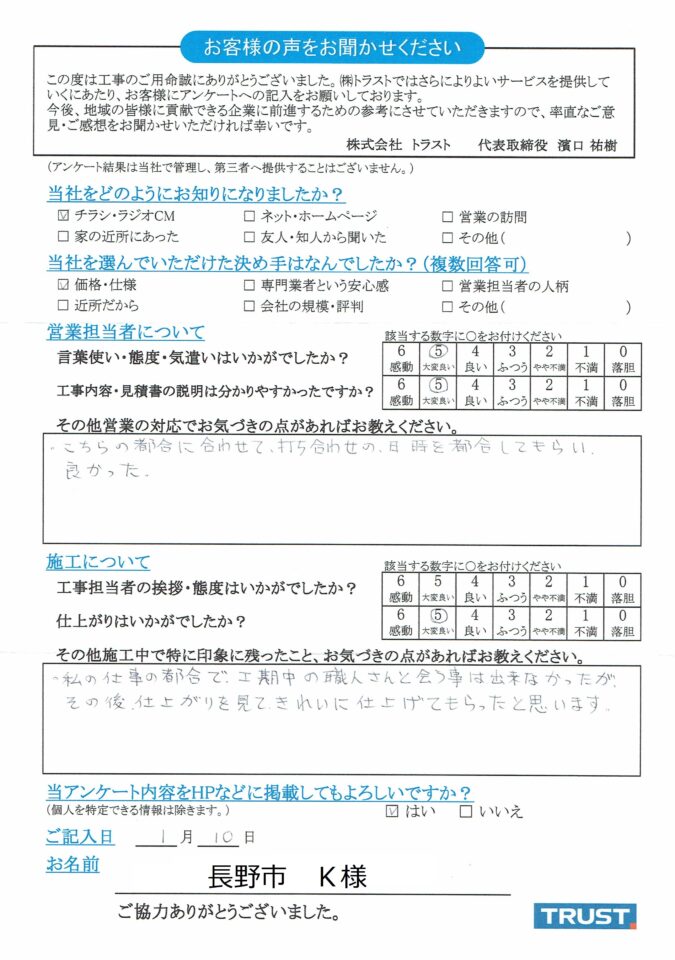 お客様の声をお聞かせください
この度は工事のご用命誠にありがとうございました。㈱トラストではさらによりよいサービスを提供して
いくにあたり、お客様にアンケートへの記入をお願いしております。
今後、地域の皆様に貢献できる企業に前進するための参考にさせていただきますので、率直なご意
見・ご感想をお聞かせいただければ幸いです。
株式会社 トラスト 代表取締役 濱口 祐樹
(アンケート結果は当社で管理し、第三者へ提供することはございません。)
当社をどのようにお知りになりましたか？
☑ チラシ・ラジオCM □ ネット・ホームページ □ 営業の訪問
□ 家の近所にあった □ 友人・知人から聞いた □ その他( )
当社を選んでいただけた決め手はなんでしたか？(複数回答可)
☑ 価格・仕様 □ 専門業者という安心感 □ 営業担当者の人柄
□ 近所だから □ 会社の規模・評判 □ その他( )
営業担当者について
該当する数字に○をお付けください
言葉使い・態度・気遣いはいかがでしたか？
6 5 4 3 2 1 0
感動 大変良い 良い ふつう やや不満 不満 落胆
工事内容・見積書の説明は分かりやすかったですか？
6 5 4 3 2 1 0
感動 大変良い 良い ふつう やや不満 不満 落胆
その他営業の対応でお気づきの点があればお教えください。
・こちらの都合に合わせて、打ち合わせの、日時を都合してもらい、
良かった。
施工について
該当する数字に○をお付けください
工事担当者の挨拶・態度はいかがでしたか？
6 5 4 3 2 1 0
感動 大変良い 良い ふつう やや不満 不満 落胆
仕上がりはいかがでしたか？
6 5 4 3 2 1 0
感動 大変良い 良い ふつう やや不満 不満 落胆
その他施工中で特に印象に残ったこと、お気づきの点があればお教えください。
・私の仕事の都合で、工期中の職人さんと会う事は出来なかったが、
その後、仕上がりを見て、きれいに仕上げてもらったと思います。
当アンケート内容をHPなどに掲載してもよろしいですか？
(個人を特定できる情報は除きます。) ☑ はい □ いいえ
ご記入日 1 月 10 日
お名前
長野市 K様
ご協力ありがとうございました。
TRUST.